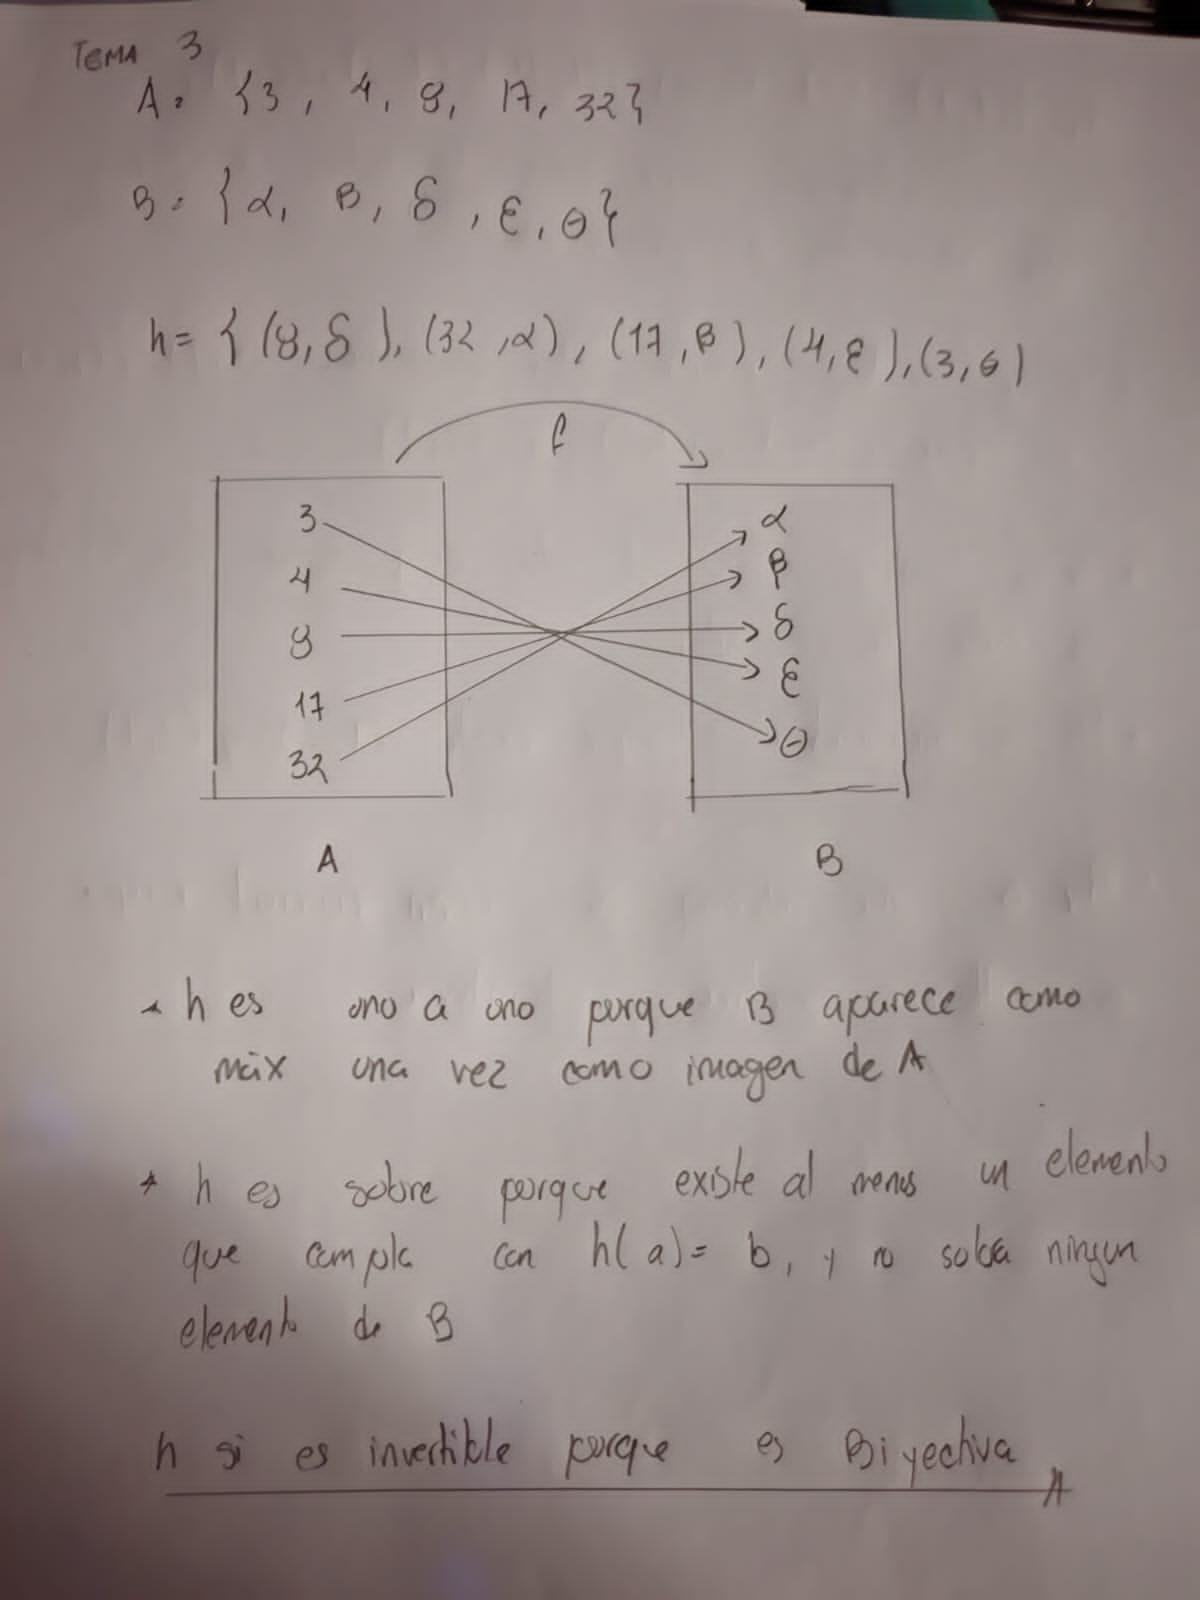 TEMA 3
A = {3, 4, 8, 17, 32}
B = {α, β, δ, ε, θ}
h = {(8, δ), (32, α), (17, β), (4, ε), (3, θ)
f
3 α
4 β
8 δ
17 ε
32 θ
A B
h es uno a uno porque B aparece como
máx una vez como imagen de A
* h es sobre porque existe al menos un elemento
que cumpla con h(a) = b, y no soba ningun
elemento de B
h si es invertible porque es Biyectiva